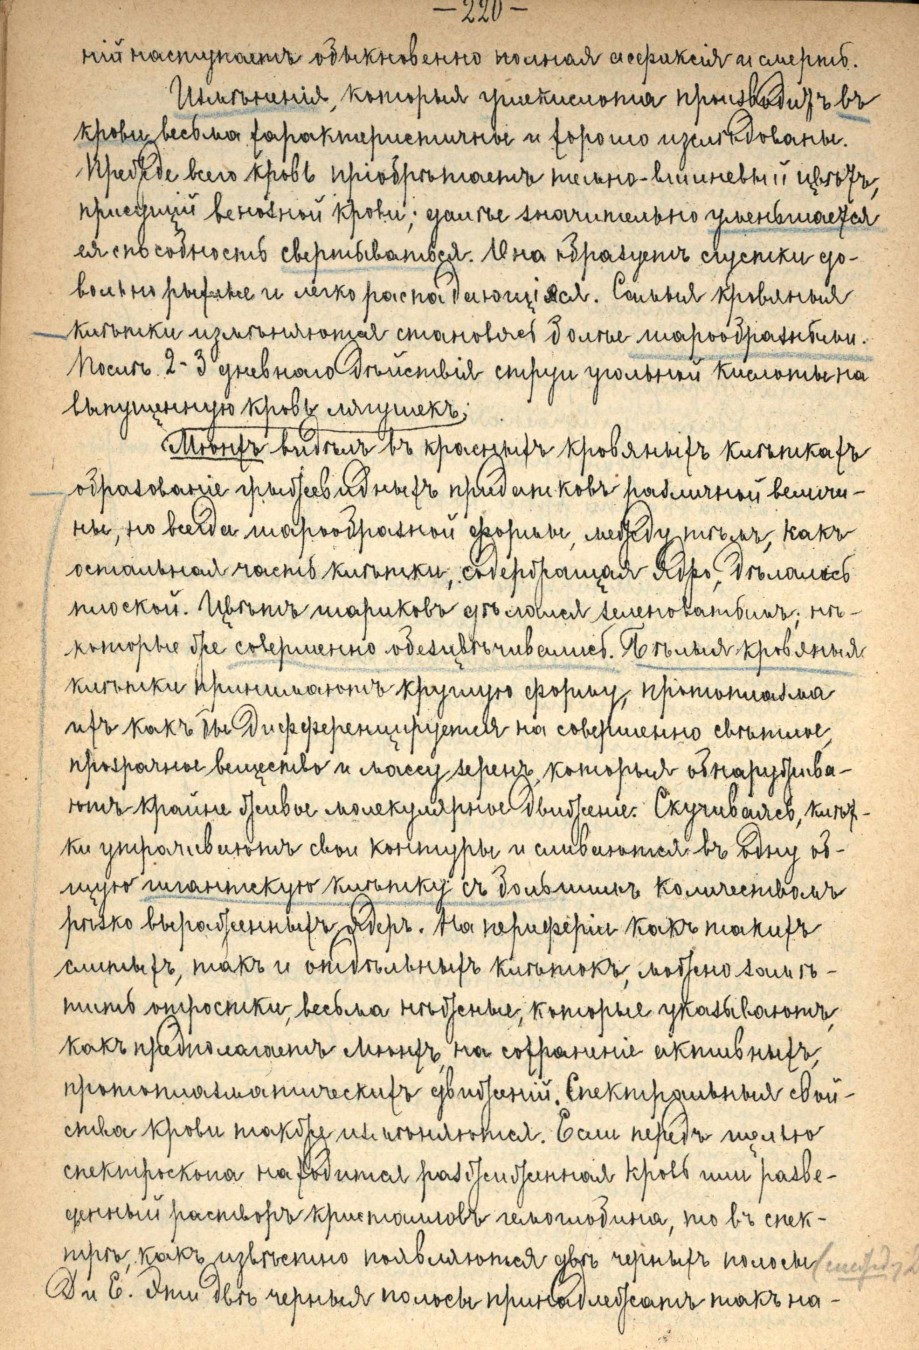 — 220 —
ній наступаетъ обыкновенно полная асфиксія и смерть.
Измѣненія, которыя углекислота производитъ въ
крови, весьма характеристичные и хорошо изслѣдованы.
Прежде всего кровь пріобрѣтаетъ темно-вишневый цвѣтъ,
присущій венозной крови; далѣе значительно уменьшается
ея способность свертываться. Она образуетъ сгустки до-
вольно рыхлые и легко распадающіяся. Самыя кровяныя
клѣтки измѣняются становясь болѣе шарообразными.
Послѣ 2-3 дневнаго дѣйствія струи угольной кислоты на
выпущенную кровь лягушекъ,
Мюнхъ видѣлъ въ красныхъ кровяныхъ клѣткахъ
образованіе грыжевидныхъ придатковъ различной величи-
ны, но всегда шарообразной формы, между тѣмъ, какъ
остальная часть клѣтки, содержащая ядро, дѣлалась
плоской. Цвѣтъ шариковъ дѣлался зеленоватымъ; нѣ-
которые же совершенно обезцвѣчивались. Бѣлыя кровяныя
клѣтки принимаютъ круглую форму, протоплазма
ихъ какъ бы дифференцируется на совершенно свѣтлое,
прозрачное вещество и массу зеренъ, которыя обнаружива-
ютъ крайне живое молекулярное движеніе. Скучиваясь, клѣт-
ки утрачиваютъ свои контуры и сливаются въ одну об-
щую гигантскую клѣтку съ большимъ количествомъ
рѣзко выраженныхъ ядеръ. На периферіи какъ такихъ
слитыхъ, такъ и отдѣльныхъ клѣтокъ, можно замѣ-
тить отростки, весьма нѣжные, которые указываютъ,
какъ предполагаетъ Мюнхъ, на сохраненіе активныхъ,
протоплазматическихъ движеній. Спектральныя свой-
ства крови также измѣняются. Если передъ щелью
спектроскопа находится разжиженная кровь или разве-
денный растворъ кристалловъ гемоглобина, то въ спек-
трѣ, какъ извѣстно появляются двѣ черныхъ полосы
D и E. Эти двѣ черныя полосы принадлежатъ такъ на-